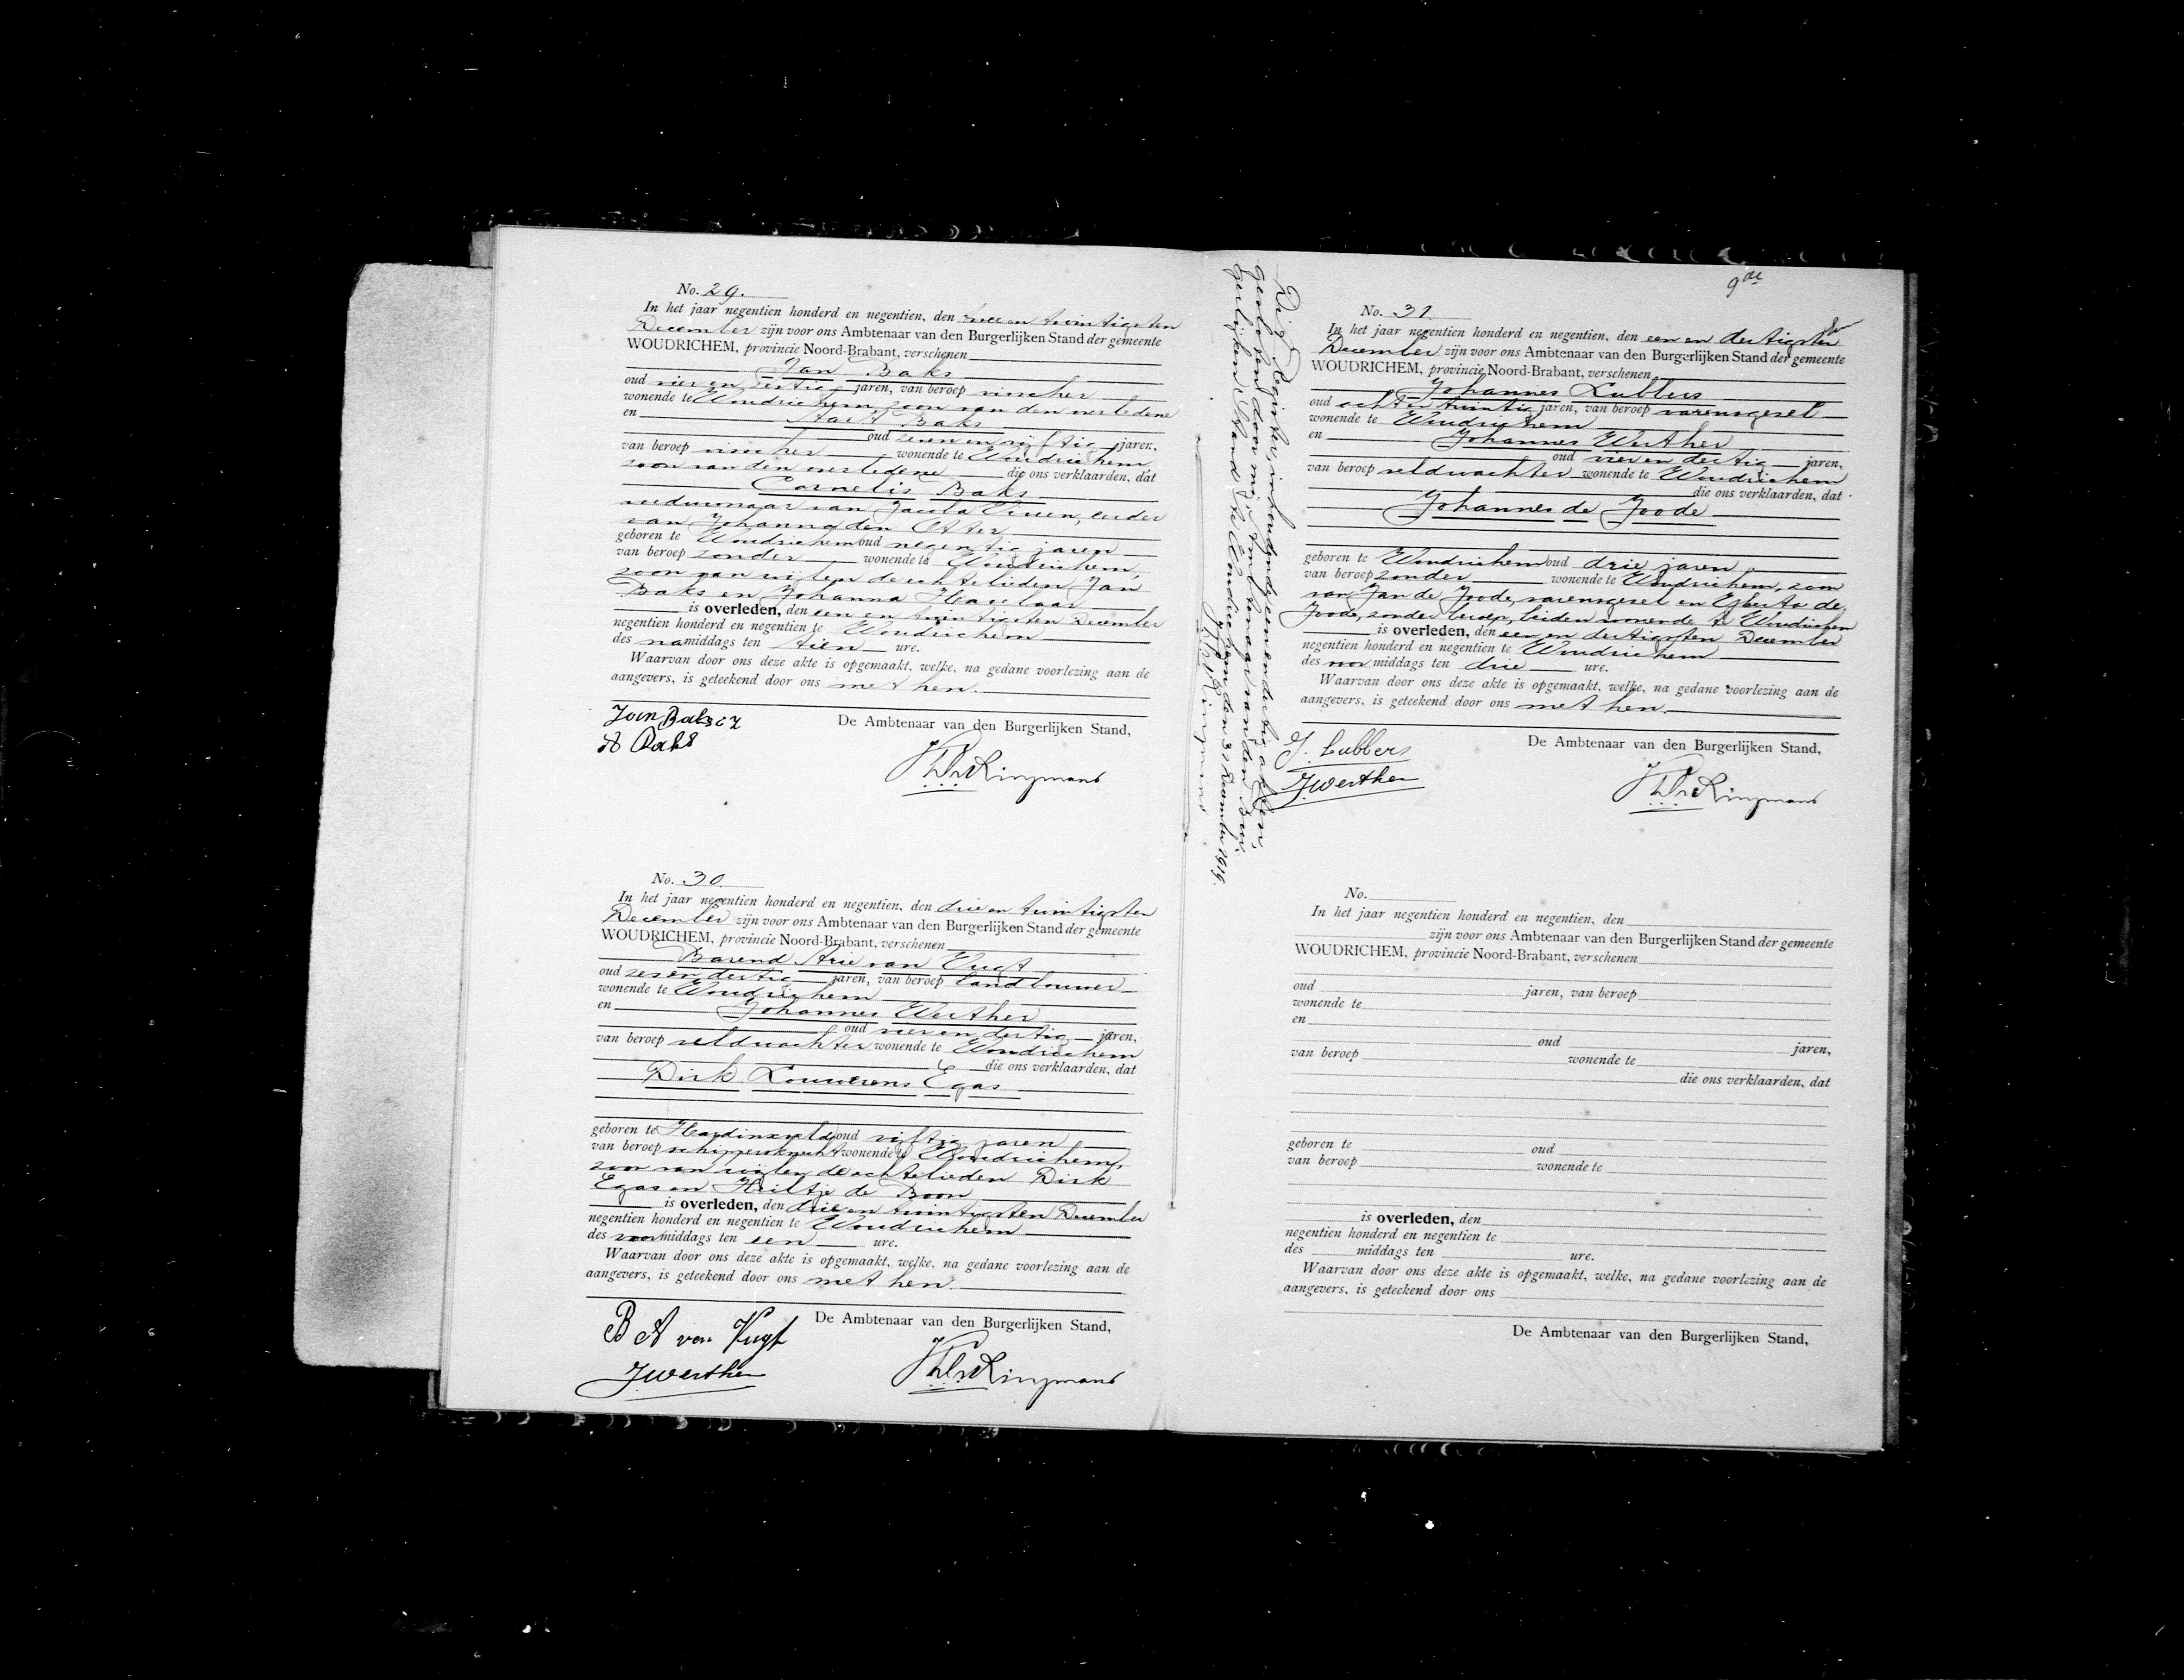 No. 29.
In het jaar negentien honderd en negentien, den twee en twintigsten
December zijn voor ons Ambtenaar van den Burgerlijken Stand der gemeente
WOUDRICHEM, provincie Noord-Brabant, verschenen
Jan Baks
oud vier en zestig jaren, van beroep visscher
wonende te Woudrichem, zoon van den overledene
en Aart Baks
oud zeven en vijftig jaren,
van beroep visscher wonende te Woudrichem,
zoon van den overledene die ons verklaarden, dat
Cornelis Baks
weduwnaar van Jacoba Visser, eerder
van Johanna den Otter
geboren te Woudrichem oud negentig jaren
van beroep zonder wonende te Woudrichem,
zoon van wijlen de echtelieden Jan
Baks en Johanna Havelaar
is overleden, den een en twintigsten December
negentien honderd en negentien te Woudrichem
des namiddags ten tien ure.
Waarvan door ons deze akte is opgemaakt, welke, na gedane voorlezing aan de
aangevers, is geteekend door ons met hen.
De Ambtenaar van den Burgerlijken Stand,
Jan Baks
A Baks
No. 30
In het jaar negentien honderd en negentien, den drie en twintigsten
December zijn voor ons Ambtenaar van den Burgerlijken Stand der gemeente
WOUDRICHEM, provincie Noord-Brabant, verschenen
Barend Arie van Vugt
oud zes en dertig jaren, van beroep landbouwer
wonende te Woudrichem
en Johannes Werther
oud vier en dertig jaren,
van beroep veldwachter wonende te Woudrichem
die ons verklaarden, dat
Dirk Louwerens Egas
geboren te Hardinxveld oud vijftig jaren
van beroep schippersknecht wonende te Woudrichem,
zoon van wijlen de echtelieden Dirk
Egas en Heiltje de Boon
is overleden, den drie en twintigsten December
negentien honderd en negentien te Woudrichem
des voormiddags ten een ure.
Waarvan door ons deze akte is opgemaakt, welke, na gedane voorlezing aan de
aangevers, is geteekend door ons met hen.
De Ambtenaar van den Burgerlijken Stand,
B A van Vugt
J Werther
Dit Register, inhoudende eenendertig akten,
gesloten door mij Ambtenaar van den Bur-
gerlijken Stand te Woudrichem den 31 December 1919.
9de
No. 31
In het jaar negentien honderd en negentien, den een en dertigsten
December zijn voor ons Ambtenaar van den Burgerlijken Stand der gemeente
WOUDRICHEM, provincie Noord-Brabant, verschenen
Johannes Lubbers
oud acht en twintig jaren, van beroep varensgezel
wonende te Woudrichem
en Johannes Werther
oud vier en dertig jaren,
van beroep veldwachter wonende te Woudrichem
die ons verklaarden, dat
Johannes de Joode
geboren te Woudrichem oud drie jaren
van beroep zonder wonende te Woudrichem, zoon
van Jan de Joode, varensgezel en Egberta de
Joode, zonder beroep, beiden wonende te Woudrichem
is overleden, den een en dertigsten December
negentien honderd en negentien te Woudrichem
des voormiddags ten drie ure.
Waarvan door ons deze akte is opgemaakt, welke, na gedane voorlezing aan de
aangevers, is geteekend door ons met hen.
De Ambtenaar van den Burgerlijken Stand,
J. Lubbers
J Werther
No.
In het jaar negentien honderd en negentien, den
zijn voor ons Ambtenaar van den Burgerlijken Stand der gemeente
WOUDRICHEM, provincie Noord-Brabant, verschenen
oud jaren, van beroep
wonende te
en
oud jaren,
van beroep wonende te
die ons verklaarden, dat
geboren te oud
van beroep wonende te
is overleden, den
negentien honderd en negentien te
des middags ten ure.
Waarvan door ons deze akte is opgemaakt, welke, na gedane voorlezing aan de
aangevers, is geteekend door ons
De Ambtenaar van den Burgerlijken Stand,